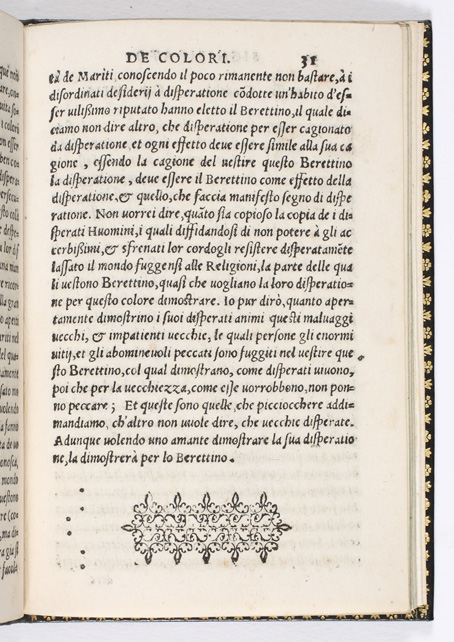 DE COLORI. 31
tà de Mariti conoscendo il poco rimanente non bastare, à i
disordinati desiderij à disperatione cõdotte un'habito d'es-
ser uilißimo riputato hanno eletto il Berettino, il quale di-
ciamo non dire altro, che disperatione per esser cagionato
da disperatione, et ogni effetto deue essere simile alla sua ca
gione, essendo la cagione del uestire questo Berettino
la disperatione, deue essere il Berettino come effetto della
disperatione, & quello, che faccia manifesto segno di dispe
ratione. Non uorrei dire, quãto sia copioso la copia de i di-
sperati Huomini, i quali diffidandosi di non potere à gli ac
cerbißimi, & sfrenati lor cordogli resistere disperatamẽte
lassato il mondo fuggensi alle Religioni, la parte delle qua
li uestono Berettino, quasi che uogliano la loro disperatio-
ne per questo colore dimostrare. Io pur dirò, quanto aper-
tamente dimostrino i suoi disperati animi questi maluaggi
uecchi, & impatienti uecchie, le quali persone gli enormi
uitij, et gli abomineuoli peccati sono fuggiti nel uestire que
sto Berettino, col qual dimostrano, come disperati uiuono,
poi che per la uecchiezza, come esse vorrobbono, non pon-
no peccare; Et queste sono quelle, che picciocchere addi-
mandiamo, ch'altro non uuole dire, che uecchie disperate.
Adunque uolendo uno amante dimostrare la sua disperatio
ne, la dimostrerà per lo Berettino.